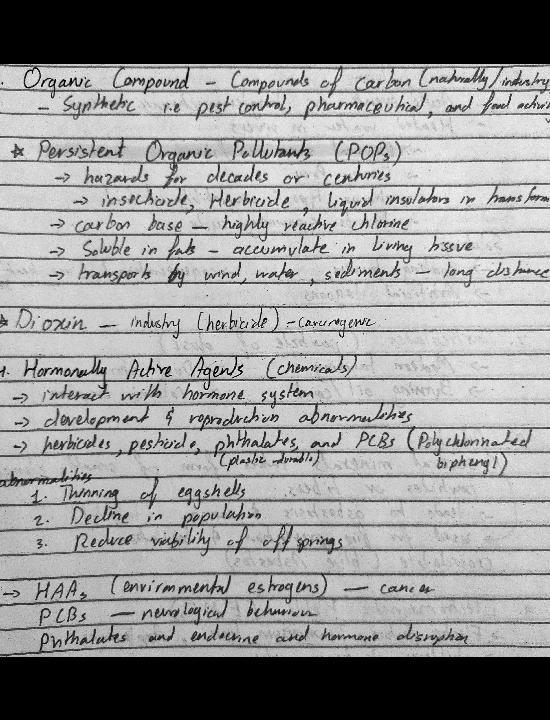 . Organic Compound – Compounds of carbon (naturally/industry
– Synthetic i.e pest control, pharmaceutical, and food
* Persistent Organic Pollutants (POPs)
→ hazards for decades or centuries
→ insecticide, Herbicide, liquid insulators in transform
→ carbon base – highly reactive chlorine
→ Soluble in fats – accumulate in living tissue
→ transports by wind, water, sediments – long distance
* Dioxin – industry (herbicide) – carcinogenic
. Hormonally Active Agents (chemicals)
→ interact with hormone system
→ development & reproduction abnormalities
→ herbicides, pesticide, phthalates, and PCBs (Polychlorinated
(plastic-durable) biphengl)
abnormalities
1. Thinning of eggshells
2. Decline in population
3. Reduce viability of offsprings
→ HAAs (environmental estrogens) – cancer
PCBs – neurological behaviour
Phthalates and endocrine and hormone disruption